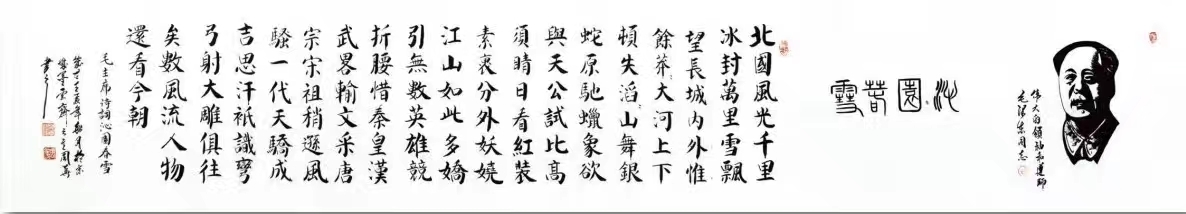 伟大的領袖和導師
毛泽东同志
沁園春雪
北國風光千里
冰封萬里雪飄
望長城内外惟
餘莽:大河上下
頓失滔:山舞銀
蛇原馳蠟象欲
與天公試比高
須晴日看紅裝
素裹分外妖嬈
江山如此多嬌
引無數英雄競
折腰惜秦皇漢
武畧輸文采唐
宗宋祖稍遜風
騷一代天驕成
吉思汗祇識彎
弓射大雕俱往
矣數風流人物
還看今朝
毛主席诗詞沁園春雪